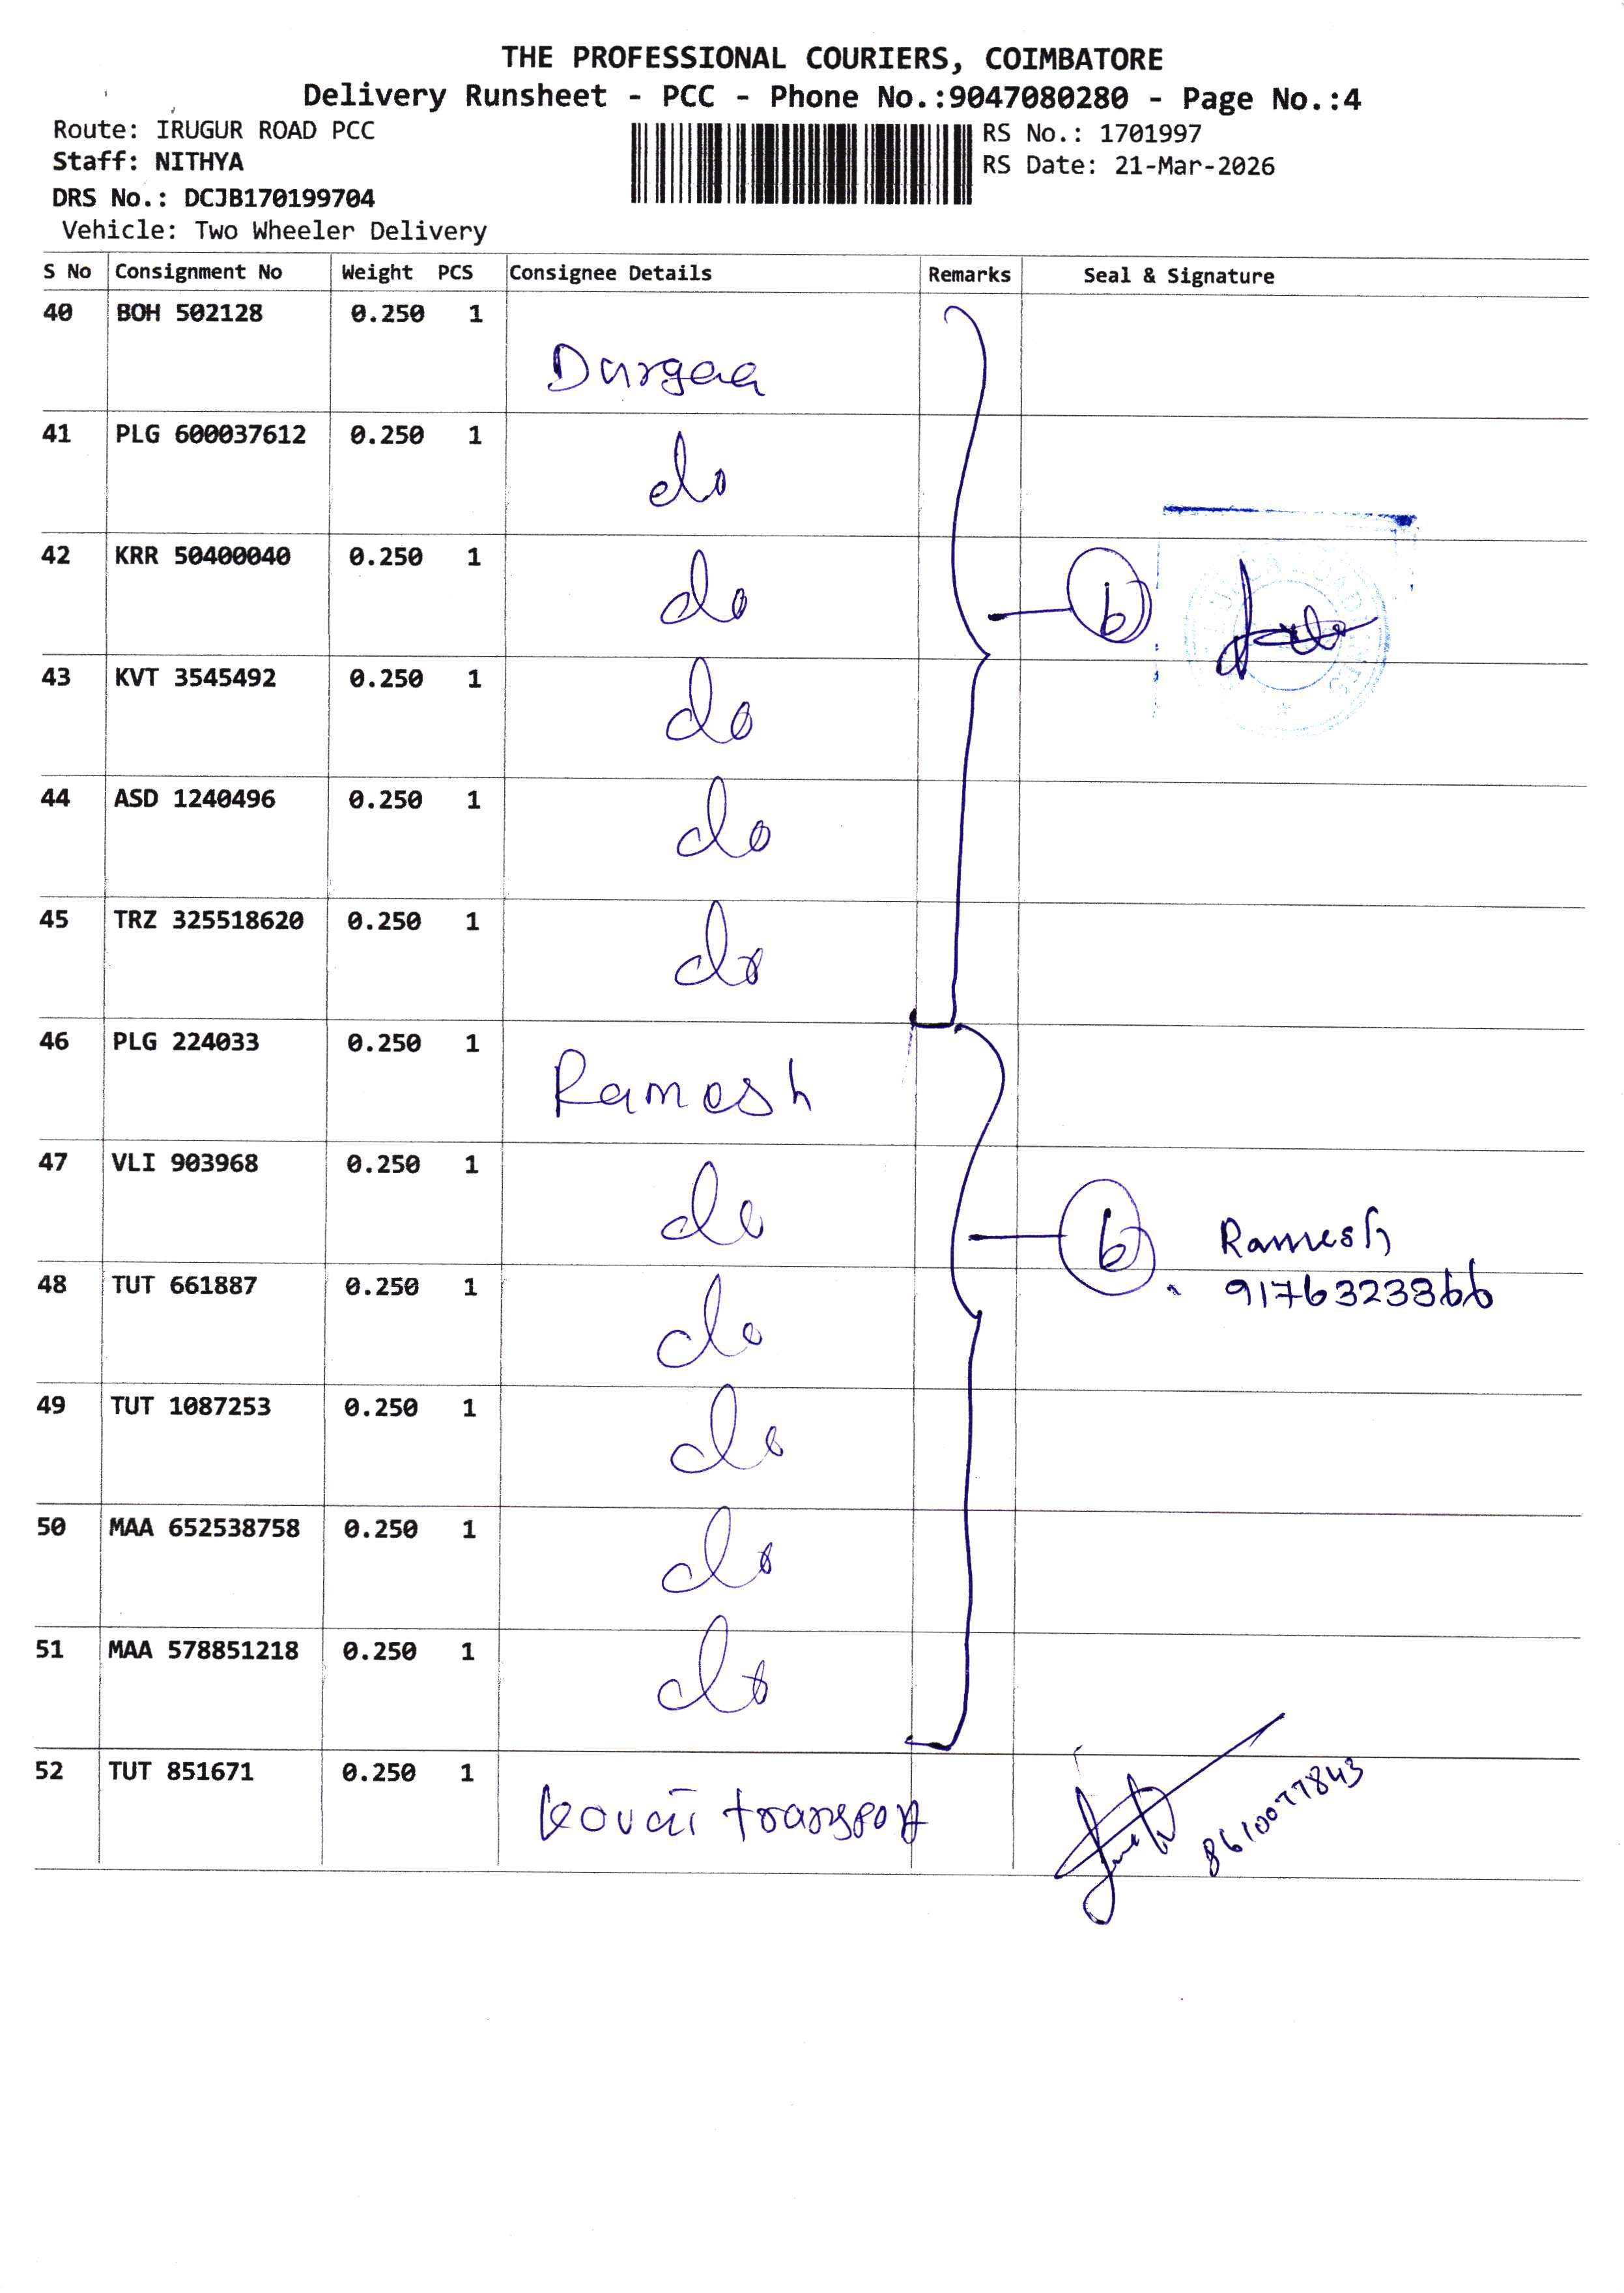 THE PROFESSIONAL COURIERS, COIMBATORE
Delivery Runsheet - PCC - Phone No.:9047080280 - Page No.:4
Route: IRUGUR ROAD PCC
RS No.: 1701997
Staff: NITHYA
RS Date: 21-Mar-2026
DRS No.: DCJB170199704
Vehicle: Two Wheeler Delivery
S No Consignment No Weight PCS Consignee Details Remarks Seal & Signature
40 BOH 502128 0.250 1 Durgaa
41 PLG 600037612 0.250 1 do
42 KRR 50400040 0.250 1 do 6
43 KVT 3545492 0.250 1 do
44 ASD 1240496 0.250 1 do
45 TRZ 325518620 0.250 1 do
46 PLG 224033 0.250 1 Ramesh
47 VLI 903968 0.250 1 do 6 Ramesh
48 TUT 661887 0.250 1 do 9176323866
49 TUT 1087253 0.250 1 do
50 MAA 652538758 0.250 1 do
51 MAA 578851218 0.250 1 do
52 TUT 851671 0.250 1 kovai transport 8610077843